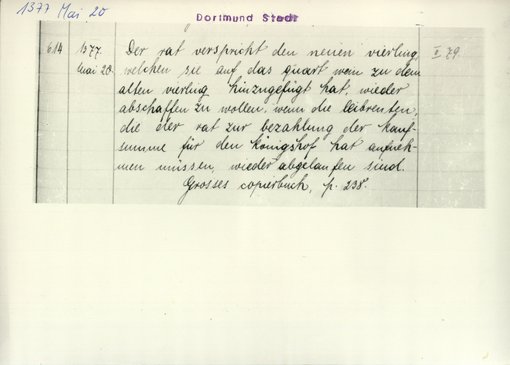 1377 Mai 20
Dortmund Stadt
614 1377. Der rat verspricht den neuen vierling, II 79.
Mai 20. welchen sie auf das quart wein zu dem
alten vierling hinzugefügt hat, wieder
abschaffen zu wollen, wenn die leibrenten,
die der rat zur bezahlung der kauf-
summe für den königshof hat aufneh-
men müssen, wieder abgelaufen sind.
Grosses copierbuch, p. 238.